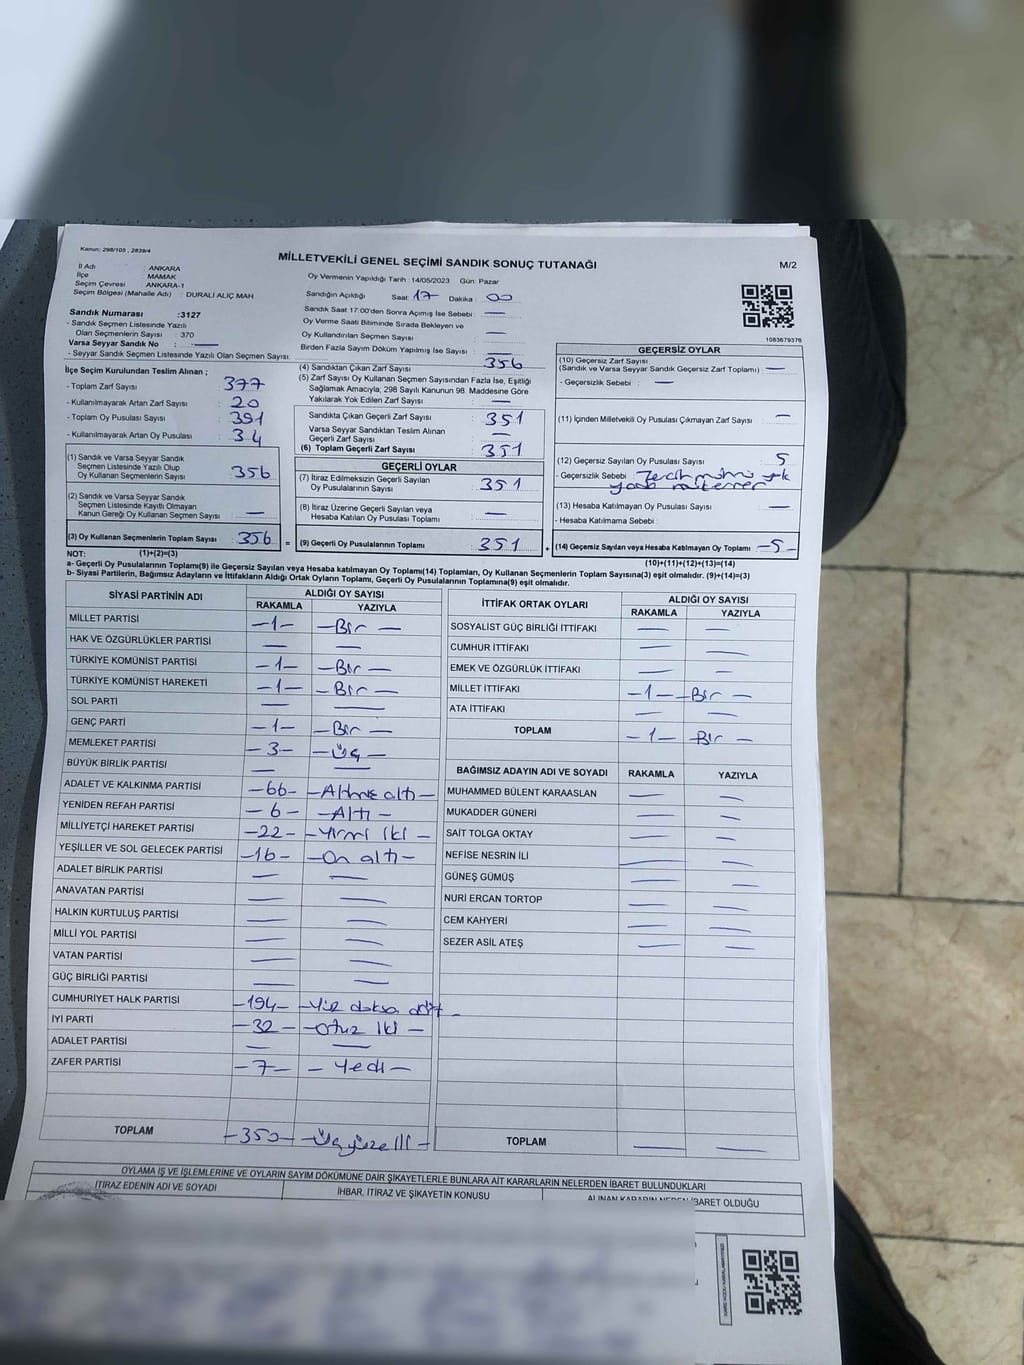 Kanun; 298/105 , 2839/4
MİLLETVEKİLİ GENEL SEÇİMİ SANDIK SONUÇ TUTANAĞI
M/2
İl Adı : ANKARA
İlçe : MAMAK
Seçim Çevresi : ANKARA-1
Seçim Bölgesi (Mahalle Adı) : DURALİ ALIÇ MAH.
Oy Vermenin Yapıldığı Tarih : 14/05/2023 Gün: Pazar
Sandığın Açıldığı Saat: 17 Dakika : 00
Sandık Saat 17:00'den Sonra Açılmış İse Sebebi : —
Oy Verme Saati Bitiminde Sırada Bekleyen ve
Oy Kullandırılan Seçmen Sayısı : —
Birden Fazla Sayım Döküm Yapılmış İse Sayısı : —
1083679376
Sandık Numarası :3127
- Sandık Seçmen Listesinde Yazılı
Olan Seçmenlerin Sayısı : 370
Varsa Seyyar Sandık No : —
- Seyyar Sandık Seçmen Listesinde Yazılı Olan Seçmen Sayısı:
İlçe Seçim Kurulundan Teslim Alınan ;
- Toplam Zarf Sayısı : 377
- Kullanılmayarak Artan Zarf Sayısı : 20
- Toplam Oy Pusulası Sayısı : 391
- Kullanılmayarak Artan Oy Pusulası : 34
(1) Sandık ve Varsa Seyyar Sandık
Seçmen Listesinde Yazılı Olup
Oy Kullanan Seçmenlerin Sayısı 356
(2) Sandık ve Varsa Seyyar Sandık
Seçmen Listesinde Kayıtlı Olmayan
Kanun Gereği Oy Kullanan Seçmen Sayısı —
(3) Oy Kullanan Seçmenlerin Toplam Sayısı 356 =
(4) Sandıktan Çıkan Zarf Sayısı : 356
(5) Zarf Sayısı Oy Kullanan Seçmen Sayısından Fazla İse, Eşitliği
Sağlamak Amacıyla; 298 Sayılı Kanunun 98. Maddesine Göre
Yakılarak Yok Edilen Zarf Sayısı : —
Sandıkta Çıkan Geçerli Zarf Sayısı : 351
Varsa Seyyar Sandıktan Teslim Alınan
Geçerli Zarf Sayısı : —
(6) Toplam Geçerli Zarf Sayısı : 351
GEÇERLİ OYLAR
(7) İtiraz Edilmeksizin Geçerli Sayılan
Oy Pusulalarının Sayısı : 351
(8) İtiraz Üzerine Geçerli Sayılan veya
Hesaba Katılan Oy Pusulası Toplamı : —
(9) Geçerli Oy Pusulalarının Toplamı : 351 +
GEÇERSİZ OYLAR
(10) Geçersiz Zarf Sayısı
(Sandık ve Varsa Seyyar Sandık Geçersiz Zarf Toplamı) : —
- Geçersizlik Sebebi : —
(11) İçinden Milletvekili Oy Pusulası Çıkmayan Zarf Sayısı : —
(12) Geçersiz Sayılan Oy Pusulası Sayısı : 5
- Geçersizlik Sebebi :
(13) Hesaba Katılmayan Oy Pusulası Sayısı : —
- Hesaba Katılmama Sebebi :
(14) Geçersiz Sayılan veya Hesaba Katılmayan Oy Toplamı : -5-
NOT: (1)+(2)=(3) (10)+(11)+(12)+(13)=(14)
a- Geçerli Oy Pusulalarının Toplamı(9) ile Geçersiz Sayılan veya Hesaba katılmayan Oy Toplamı(14) Toplamları, Oy Kullanan Seçmenlerin Toplam Sayısına(3) eşit olmalıdır. (9)+(14)=(3)
b- Siyasi Partilerin, Bağımsız Adayların ve İttifakların Aldığı Ortak Oyların Toplamı, Geçerli Oy Pusulalarının Toplamına(9) eşit olmalıdır.
SİYASİ PARTİNİN ADI ALDIĞI OY SAYISI
RAKAMLA YAZIYLA
MİLLET PARTİSİ -1- -Bir-
HAK VE ÖZGÜRLÜKLER PARTİSİ — —
TÜRKİYE KOMÜNİST PARTİSİ -1- -Bir-
TÜRKİYE KOMÜNİST HAREKETİ -1- -Bir-
SOL PARTİ — —
GENÇ PARTİ -1- -Bir-
MEMLEKET PARTİSİ -3- -Üç-
BÜYÜK BİRLİK PARTİSİ — —
ADALET VE KALKINMA PARTİSİ -66- -Altmış altı-
YENİDEN REFAH PARTİSİ -6- -Altı-
MİLLİYETÇİ HAREKET PARTİSİ -22- -Yirmi iki-
YEŞİLLER VE SOL GELECEK PARTİSİ -16- -On altı-
ADALET BİRLİK PARTİSİ — —
ANAVATAN PARTİSİ — —
HALKIN KURTULUŞ PARTİSİ — —
MİLLİ YOL PARTİSİ — —
VATAN PARTİSİ — —
GÜÇ BİRLİĞİ PARTİSİ — —
CUMHURİYET HALK PARTİSİ -194- -Yüz doksan dört-
İYİ PARTİ -32- -Otuz iki-
ADALET PARTİSİ — —
ZAFER PARTİSİ -7- -Yedi-
TOPLAM -350- -Üçyüzelli-
İTTİFAK ORTAK OYLARI ALDIĞI OY SAYISI
RAKAMLA YAZIYLA
SOSYALİST GÜÇ BİRLİĞİ İTTİFAKI — —
CUMHUR İTTİFAKI — —
EMEK VE ÖZGÜRLÜK İTTİFAKI — —
MİLLET İTTİFAKI -1- -Bir-
ATA İTTİFAKI — —
TOPLAM -1- -Bir-
BAĞIMSIZ ADAYIN ADI VE SOYADI RAKAMLA YAZIYLA
MUHAMMED BÜLENT KARAASLAN — —
MUKADDER GÜNERİ — —
SAİT TOLGA OKTAY — —
NEFİSE NESRİN İLİ — —
GÜNEŞ GÜMÜŞ — —
NURİ ERCAN TORTOP — —
CEM KAHYERİ — —
SEZER ASİL ATEŞ — —
TOPLAM — —
OYLAMA İŞ VE İŞLEMLERİNE VE OYLARIN SAYIM DÖKÜMÜNE DAİR ŞİKAYETLERLE BUNLARA AİT KARARLARIN NELERDEN İBARET BULUNDUKLARI
İTİRAZ EDENİN ADI VE SOYADI İHBAR, İTİRAZ VE ŞİKAYETİN KONUSU ALINAN KARARIN NEDEN İBARET OLDUĞU